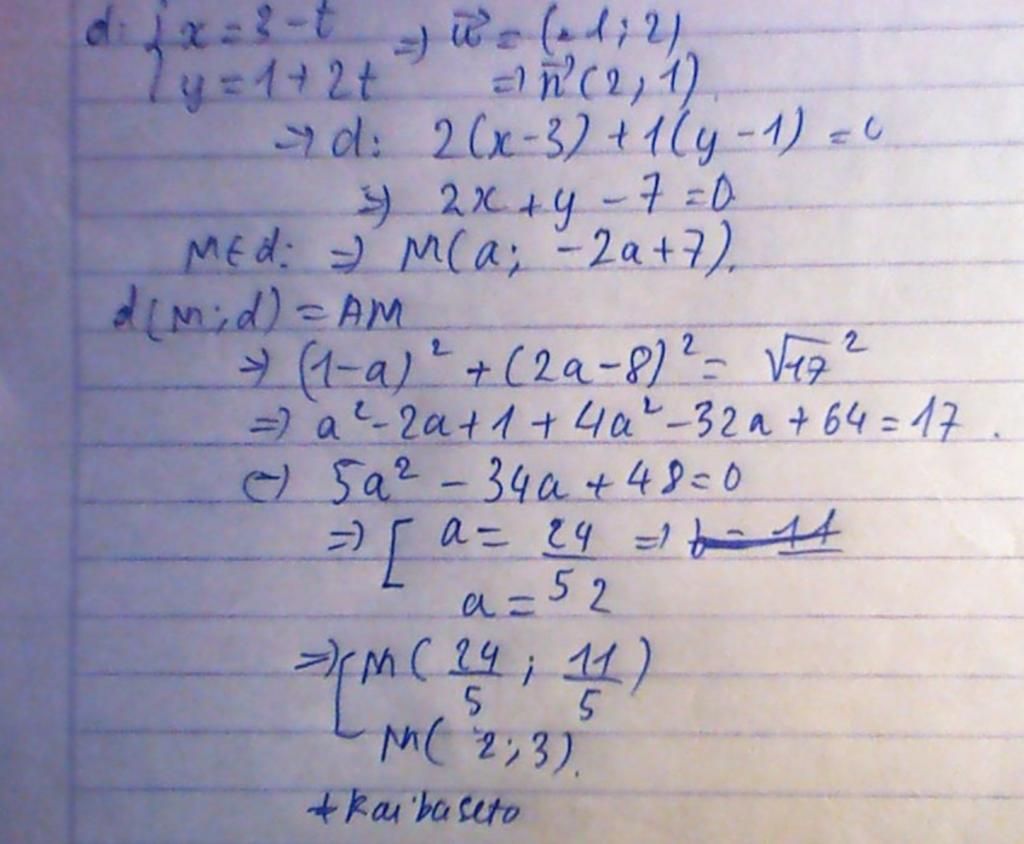 d: { x = 3 - t ⇒ u⃗ = (-1; 2)
{ y = 1 + 2t ⇒ n⃗ (2; 1)
→ d: 2(x - 3) + 1(y - 1) = 0
⇒ 2x + y - 7 = 0
M ∈ d: ⇒ M(a; -2a + 7).
d(M; d) = AM
⇒ (1 - a)² + (2a - 8)² = √17²
⇒ a² - 2a + 1 + 4a² - 32a + 64 = 17.
⇔ 5a² - 34a + 48 = 0
⇒ [ a = 24/5 ⇒
a = 2
⇒ [ M( 24/5 ; 11/5 )
M( 2; 3).
+ Kaibaseto